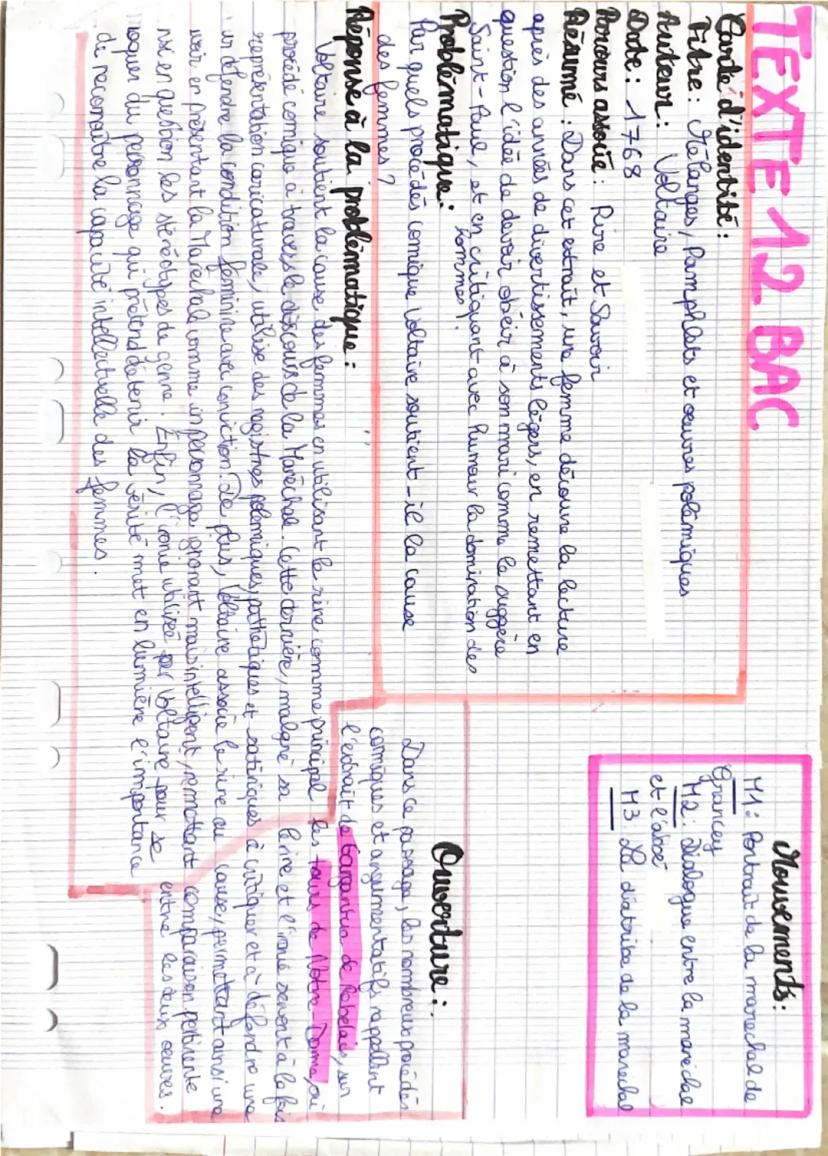 TEXTE 12 BAC
Carte d'identité :
Titre : Mélanges, Pamphlets et œuvres polémiques
Auteur : Voltaire
Date : 1768
Parcours associé : Rire et Savoir
Résumé : Dans cet extrait, une femme découvre la lecture
après des années de divertissements légers, en remettant en
question l'idée de devoir obéir à son mari comme le suggère
Saint-Paul, et en critiquant avec humour la domination des
hommes.
Problématique :
Par quels procédés comique Voltaire soutient-il la cause
des femmes ?
Mouvements :
M1 : Portrait de la maréchal de
Grancey
M2 : Dialogue entre la maréchal
et l'abbé
M3 : La diatribe de la maréchal
Réponse à la problématique :
Voltaire soutient la cause des femmes en utilisant le rire comme principal
procédé comique à travers le discours de la Maréchal. Cette dernière, malgré sa
représentation caricaturale, utilise des registres polémiques, pathétiques et satiriques à
défendre la condition féminine avec conviction. De plus, Voltaire associe le rire au
savoir en présentant la Maréchal comme un personnage ignorant mais intelligent, remettant
en question les stéréotypes de genre. Enfin, l'ironie utilisée par Voltaire pour se
moquer du personnage qui prétend détenir la vérité met en lumière l'importance
de reconnaître la capacité intellectuelle des femmes.
Ouverture :
Dans ce passage, les nombreux procédés
comiques et argumentatifs rappellent
l'extrait de Gargantua de Rabelais, sur
les tours de Notre-Dame, où
le rire et l'ironie servent à la fois
critiquer et à défendre une
cause, permettant ainsi une
comparaison pertinente
entre les deux œuvres.